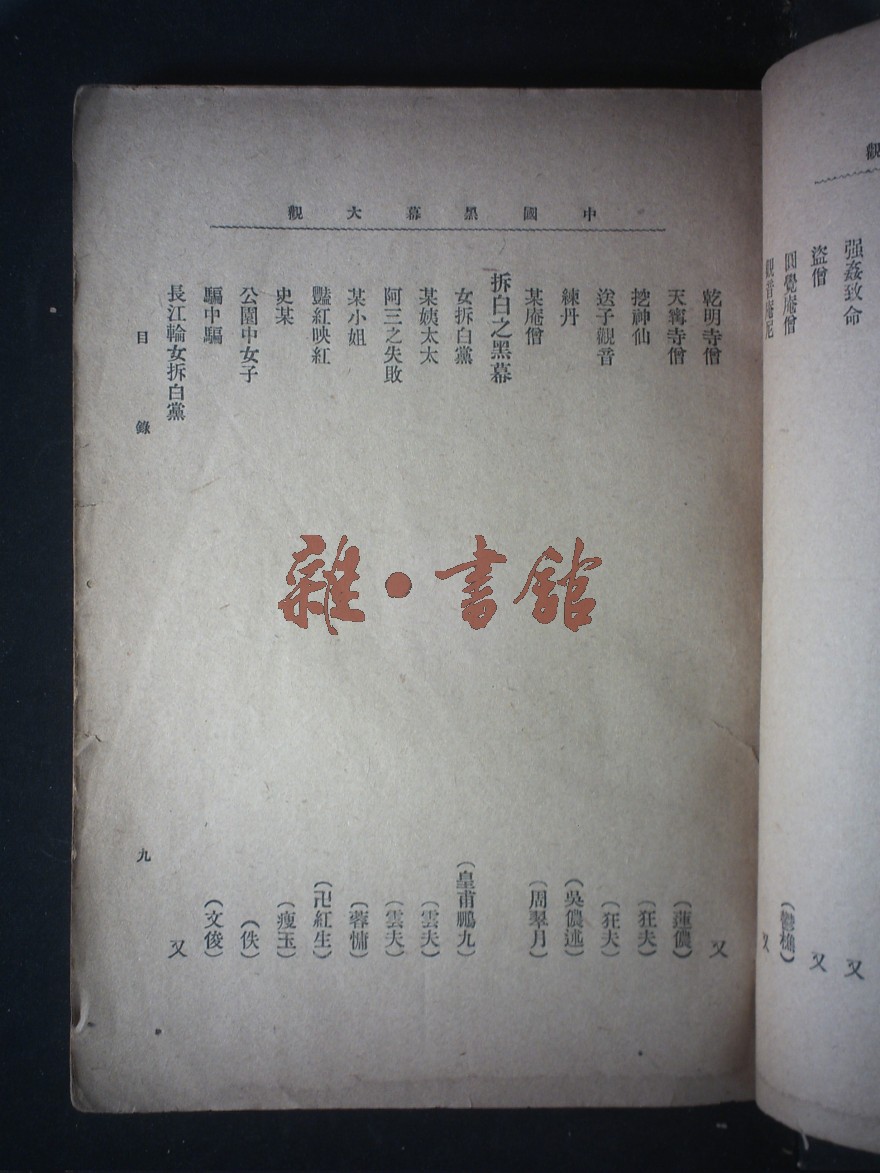 觀
强姦致命 又
盜僧 又
圓覺庵僧 (鬱樵)
觀音庵尼 又
中國黑幕大觀
乾明寺僧 又
天寗寺僧 (蓮儂)
挖神仙 (狂夫)
送子觀音 (狂夫)
練丹 (吳儂述)
某庵僧 (周翠月)
拆白之黑幕
女拆白黨 (皇甫鵬九)
某姨太太 (雲夫)
阿三之失敗 (雲夫)
某小姐 (蓉慵)
豔紅映紅 (卍紅生)
史某 (瘦玉)
公園中女子 (佚)
騙中騙 (文俊)
長江輪女拆白黨 又
目錄 九
雜·書館